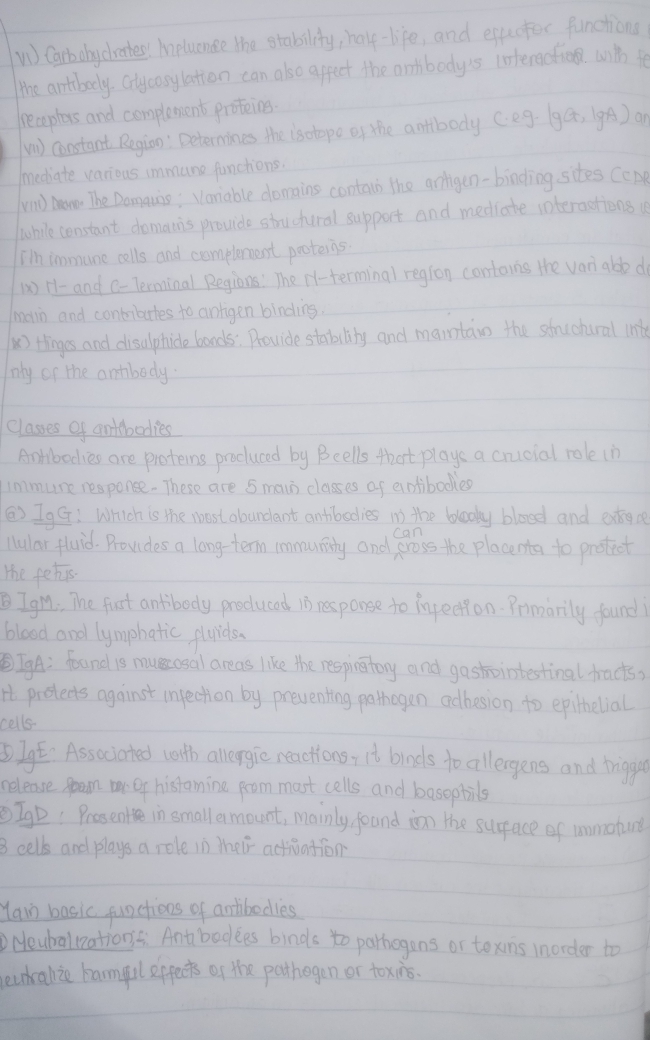 vi) Carbohydrates: Influence the stability, half-life, and effector functions
the antibody. Glycosylation can also affect the antibody's interaction with fe
receptors and complement proteins.
vii) Constant Region: Determines the isotope of the antibody (e.g. IgG, IgA) an
mediate various immune functions.
viii) The Domains: Variable domains contain the antigen-binding sites (CDR
while constant domains provide structural support and mediate interactions w
ith immune cells and complement proteins.
ix) N- and C-Terminal Regions: The N-terminal region contains the variable do
main and contributes to antigen binding.
x) Hinges and disulphide bonds: Provide stability and maintain the structural inte
rity of the antibody.
Classes of antibodies
Antibodies are proteins produced by B cells that plays a crucial role in
immune response - These are 5 main classes of antibodies
IgG: Which is the most abundant antibodies in the blood and extrace
llular fluid. Provides a long-term immunity and can cross the placenta to protect
the fetus.
IgM: The first antibody produced in response to infection. Primarily found i
blood and lymphatic fluids.
IgA: found is mucosal areas like the respiratory and gastrointestinal tracts,
it protects against infection by preventing pathogen adhesion to epithelial
cells.
IgE: Associated with allergic reactions, it binds to allergens and trigger
release of histamine from mast cells and basophils
IgD: Present in small amount, mainly found on the surface of immature
B cells and plays a role in their activation
Main basic functions of antibodies
Neutralization's: Antibodies binds to pathogens or toxins inorder to
neutralize harmful effects of the pathogen or toxins.